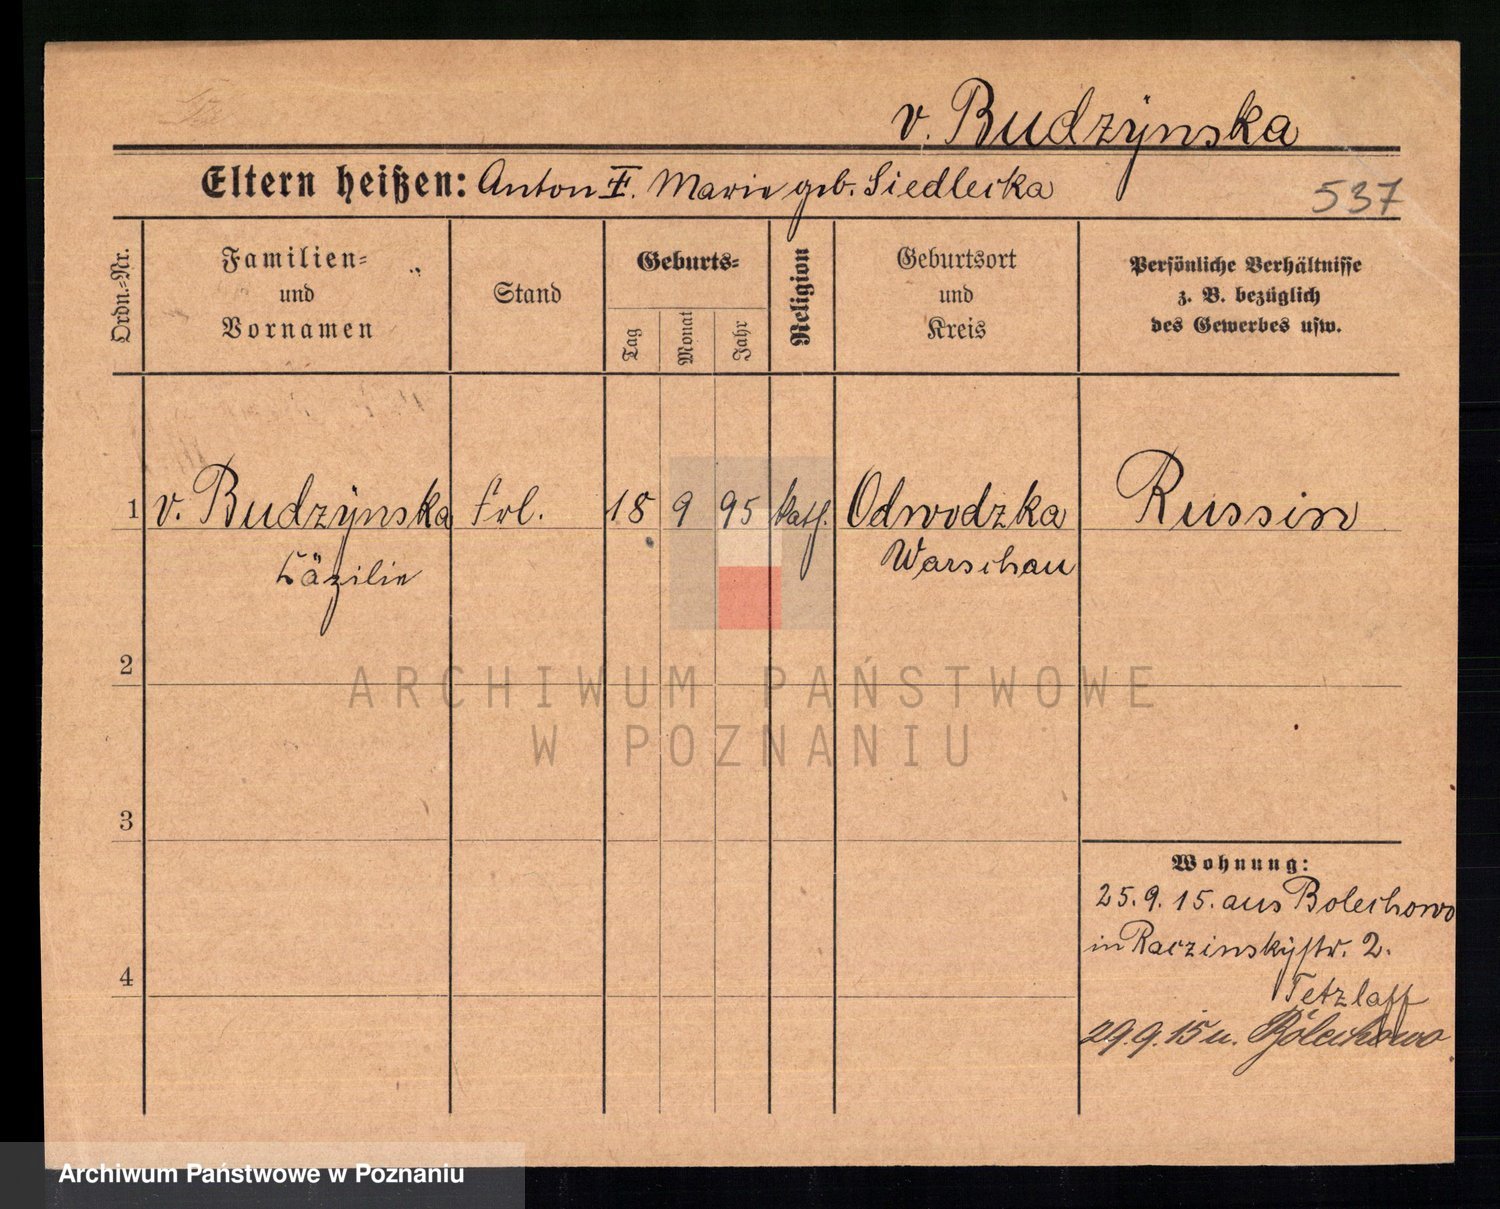 v. Budzÿnska
Eltern heißen: Anton Marie geb. Siedlecka
537
Ordn.=Nr.
Familien=
und
Vornamen
Stand
Geburts=
Tag
Monat
Jahr
Religion
Geburtsort
und
Kreis
Persönliche Verhältnisse
z. B. bezüglich
des Gewerbes usw.
1 v. Budzÿnska Frl. 18 9 95 kath. Odwodzka Russin
Cäzilie Warschau
2
ARCHIWUM PAŃSTWOWE
W POZNANIU
3
Wohnung:
25.9.15. aus Bolechowo
in Raczinskÿstr. 2.
4
Tetzlaff
29.9.15 n. Bolechowo
Archiwum Państwowe w Poznaniu